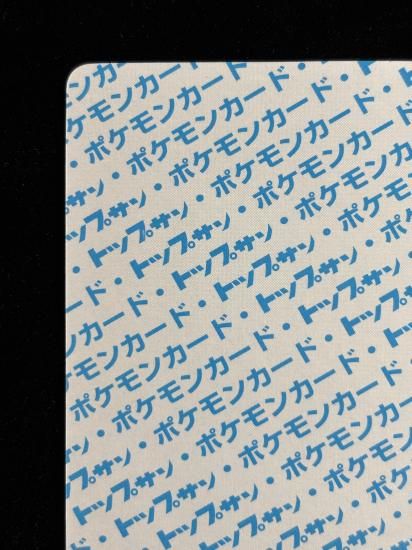 カード
ケモンカード・ト
・ポケモンカード・ト
プサン・ポケモンカード
トップサン・ポケモンカ
・トップサン・ポケモン
ド・トップサン・ポ
カード・トップサン・
モンカード・トップサン
ケモンカード・トッ
ポケモンカード・ト
・ポケモンカード・
サン・ポケモンカード
トップサン・ポケモン
・トップサン・ポケ